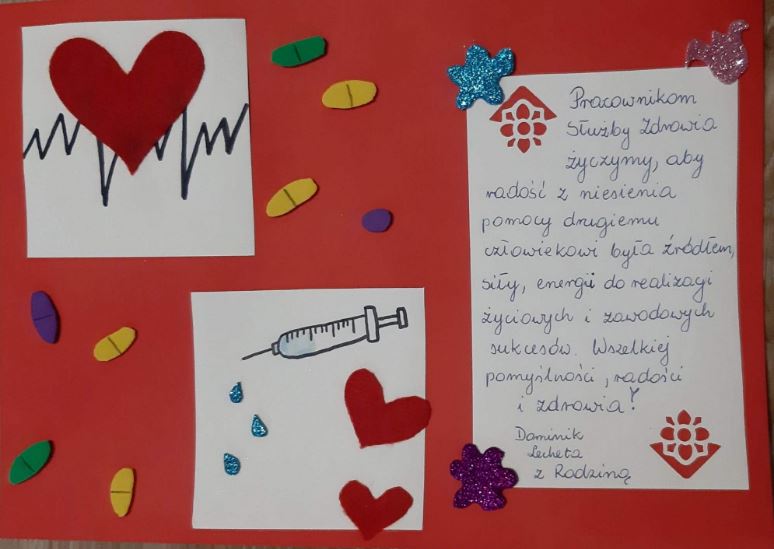 Pracownikom
Służby Zdrowia
życzymy, aby
radość z niesienia
pomocy drugiemu
człowiekowi była źródłem,
siły, energii do realizacji
życiowych i zawodowych
sukcesów. Wszelkiej
pomyślności, radości
i zdrowia!
Dominik
Lecheta
z Rodziną